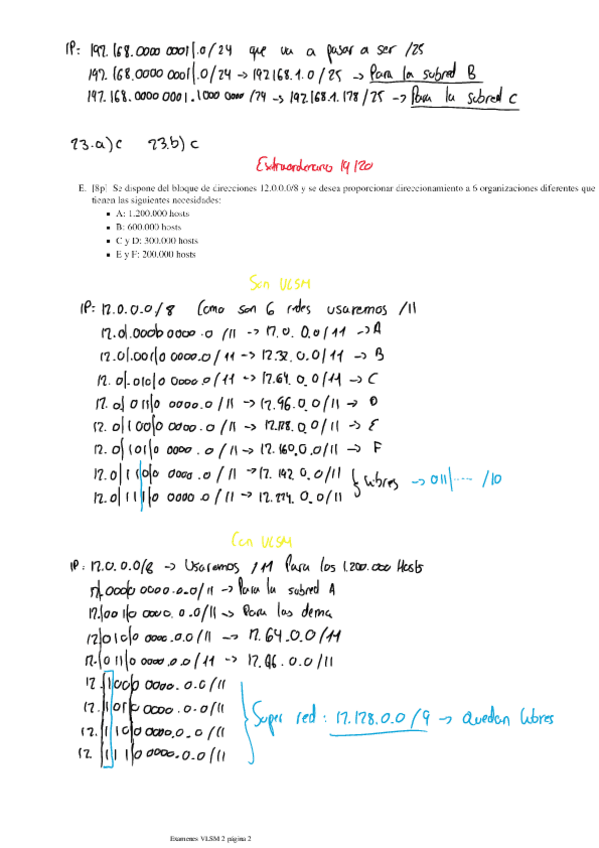 IP: 192.168.0000 0001|.0/24 que va a pasar a ser /25
192.168.0000 0001|.0/24 -> 192168.1.0/25 -> Para la subred B
192.168.0000 0001.1000 0000/24 -> 192168.1.128/25 -> Para la subred C
23.a) c 23.b) c
Extraordinario 19/20
E. [8p] Se dispone del bloque de direcciones 12.0.0.0/8 y se desea proporcionar direccionamiento a 6 organizaciones diferentes que
tienen las siguientes necesidades:
▪ A: 1.200.000 hosts
▪ B: 600.000 hosts
▪ C y D: 300.000 hosts
▪ E y F: 200.000 hosts
Sin VLSM
IP: 12.0.0.0/8 Como son 6 redes usaremos /11
12.0|.000|0 0000.0 /11 -> 12.0.0.0/11 -> A
12.0|.001|0 0000.0/11 -> 12.32.0.0/11 -> B
12.0|.010|0 0000.0/11 -> 12.64.0.0/11 -> C
12.0|011|0 0000.0/11 -> 12.96.0.0/11 -> D
12.0|100|0 0000.0/11 -> 12.128.0.0/11 -> E
12.0|101|0 0000.0/11 -> 12.160.0.0/11 -> F
12.0|110|0 0000.0/11 -> 12.192.0.0/11
12.0|111|0 0000.0/11 -> 12.224.0.0/11 } Libres -> 011|.... /10
Con VLSM
IP: 12.0.0.0/8 -> Usaremos /11 Para los 1.200.000 Hosts
12|.000|0 0000.0.0/11 -> Para la subred A
12.|001|0 0000.0.0/11 -> Para las dema
12|010|0 0000.0.0/11 -> 12.64.0.0/11
12.|011|0 0000.0.0/11 -> 12.96.0.0/11
12.|100|0 0000.0.0/11
12.|101|0 0000.0.0/11
12.|110|0 0000.0.0/11
12.|111|0 0000.0.0/11
} Super red: 12.128.0.0/9 -> Quedan libres
Examenes VLSM 2 página 2